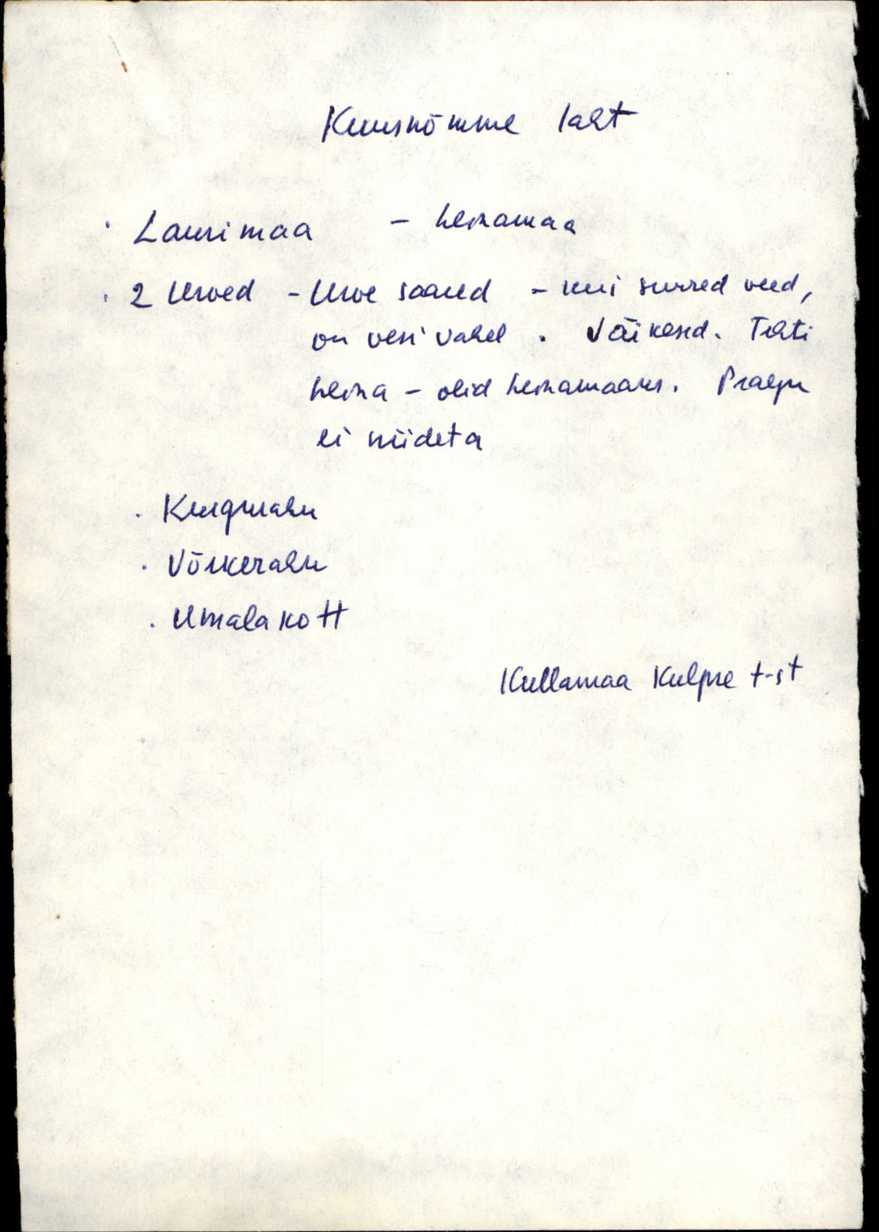 Kuusnõmme laht
· Laurimaa - heinamaa
· 2 Urved - Urve saared - kui suured veed,
on vesi vahel. Väikesed. Tehti
heina - olid heinamaaks. Praegu
ei niideta
· Kungurahu
· Võrkerahu
· Umalakott
Kullamaa Kulpne t-st